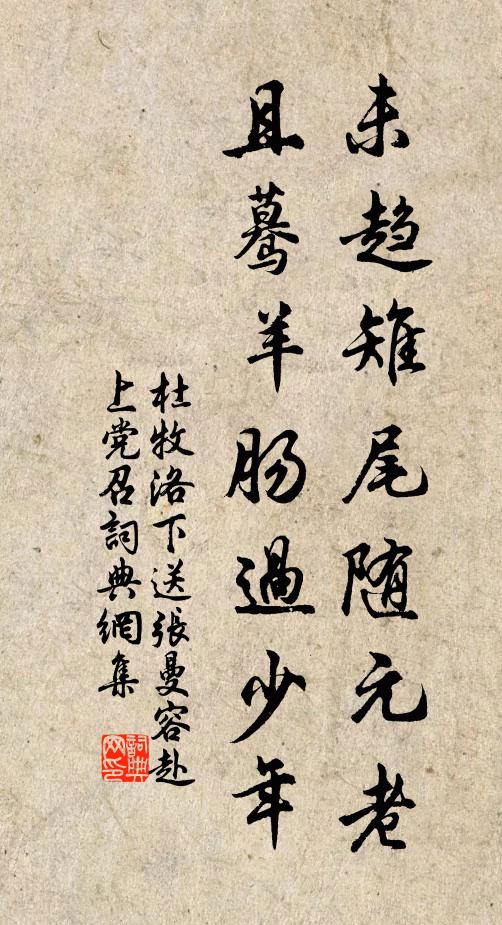 未趋雉尾随元老
且蓦羊肠過少年
杜牧洛下送張曼容赴
上党召詞典網集
詞典网印